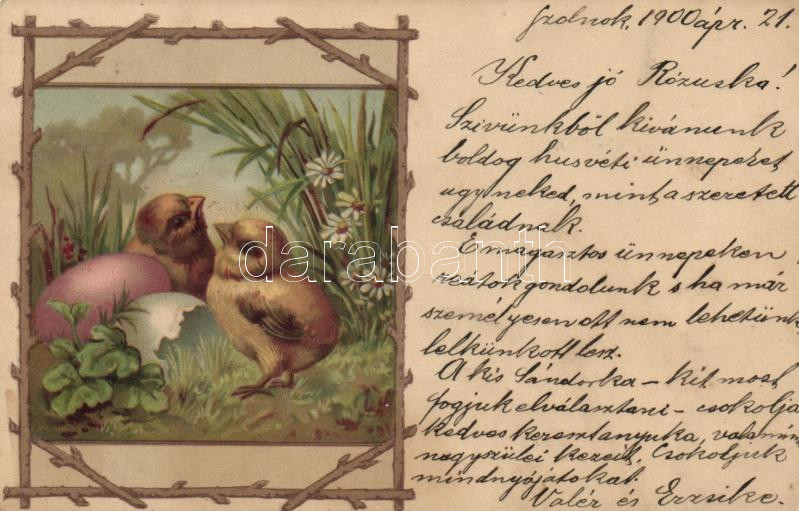 Szolnok, 1900 ápr. 21.
Kedves jó Rózuska!
Szivünkből kivánunk
boldog husvéti ünnepeket
ugy neked, mint a szeretett
családnak.
E magasztos ünnepeken
reátok gondolunk s ha már
személyesen ott nem lehetünk
lelkünk ott lesz.
A kis Sándorka – kit most
fogjuk elválasztani – csokolja
kedves keresztanyuka, valamint
nagyszülei kezeit. Csokoljuk
mindnyájatokat
Valér és Erzsike.
darabanth.com